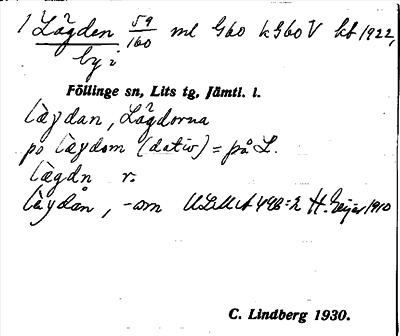 1 Lägden 59/160 ml G60 kG60V kt 1922,
by i
Föllinge sn, Lits tg, Jämtl. l.
lägdan, Lägdorna
på lägdom (dativ) = på L.
lägdn r.
lägdån, -om ULMA 49B:2 H. Geijer 1910
C. Lindberg 1930.